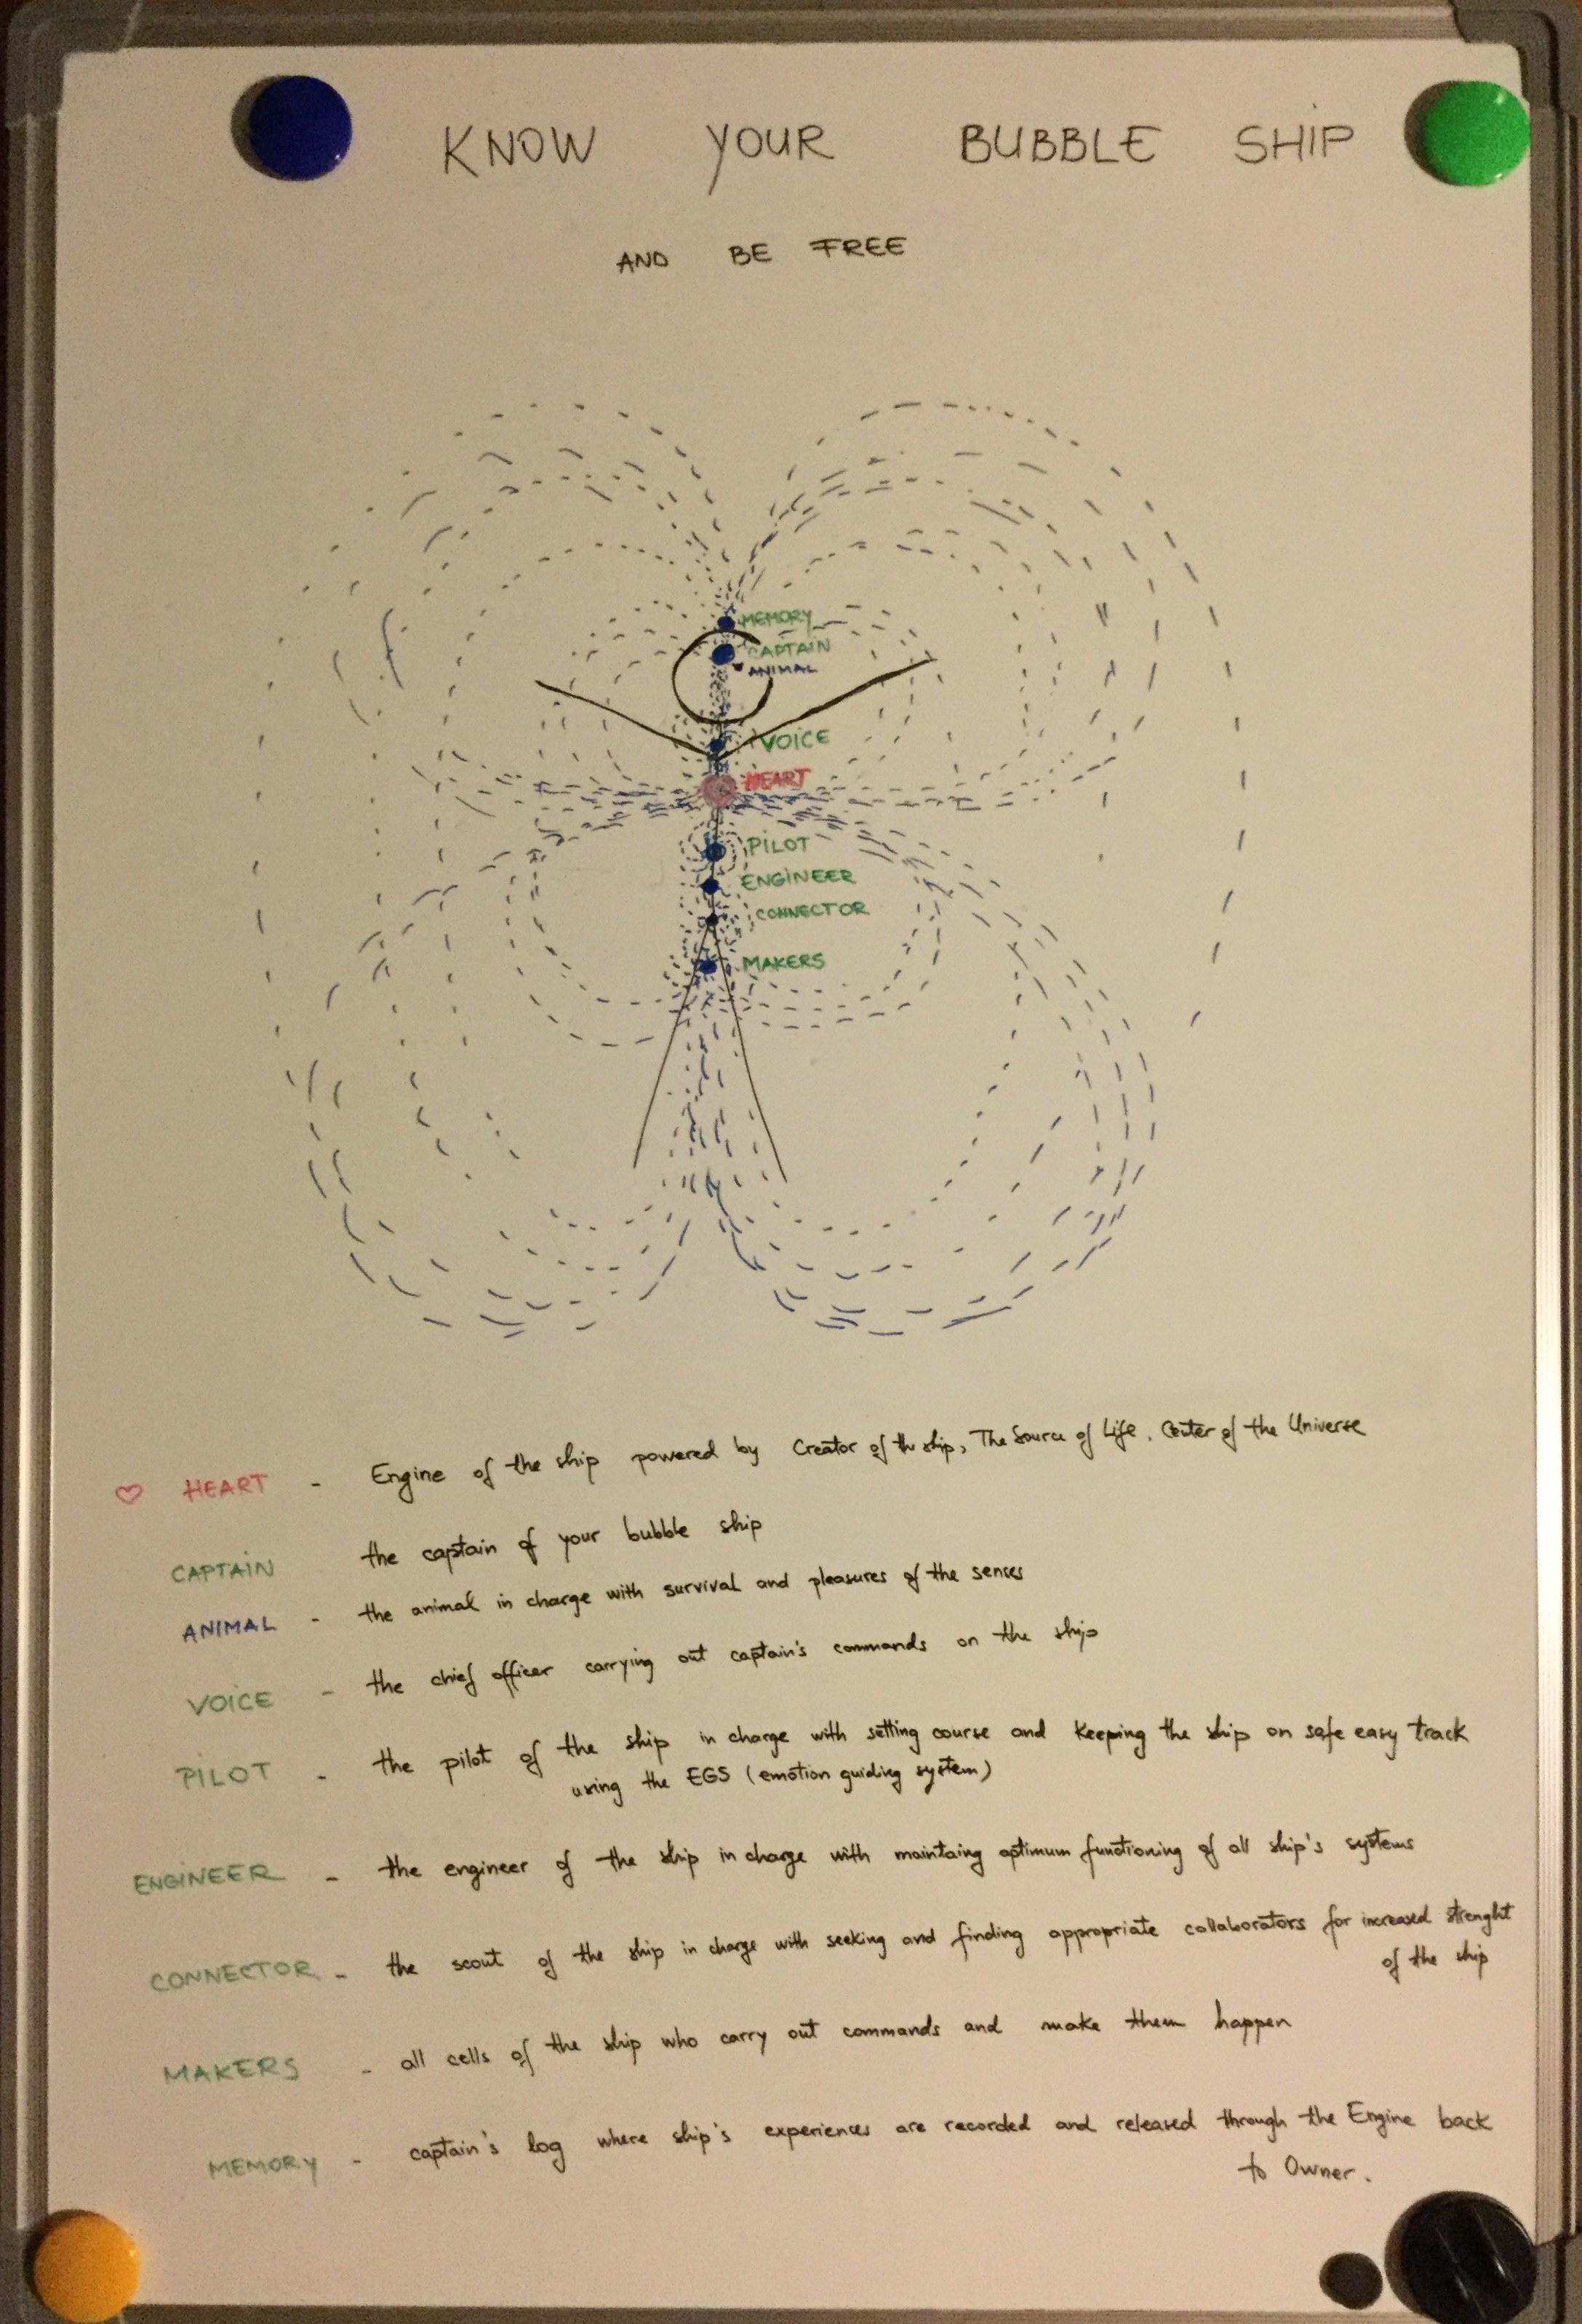 KNOW YOUR BUBBLE SHIP
AND BE FREE
MEMORY
CAPTAIN
ANIMAL
VOICE
HEART
PILOT
ENGINEER
CONNECTOR
MAKERS
♡ HEART - Engine of the ship powered by Creator of the ship, The Source of Life. Center of the Universe
CAPTAIN the captain of your bubble ship
ANIMAL - the animal in charge with survival and pleasures of the senses
VOICE - the chief officer carrying out captain's commands on the ship
PILOT - the pilot of the ship in charge with setting course and keeping the ship on safe easy track
using the EGS (emotion guiding system)
ENGINEER - the engineer of the ship in charge with maintaing optimum functioning of all ship's systems
CONNECTOR - the scout of the ship in charge with seeking and finding appropriate collaborators for increased strenght
of the ship
MAKERS - all cells of the ship who carry out commands and make them happen
MEMORY - captain's log where ship's experiences are recorded and released through the Engine back
to Owner.